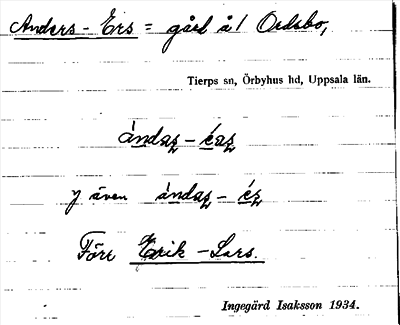 Anders - Ers = gård å 1 Ordsbo,
Tierps sn, Örbyhus hd, Uppsala län.
ándaʂ - éaʂ
y även ándaʂ - éʂ
Förr Erik - Lars.
Ingegärd Isaksson 1934.